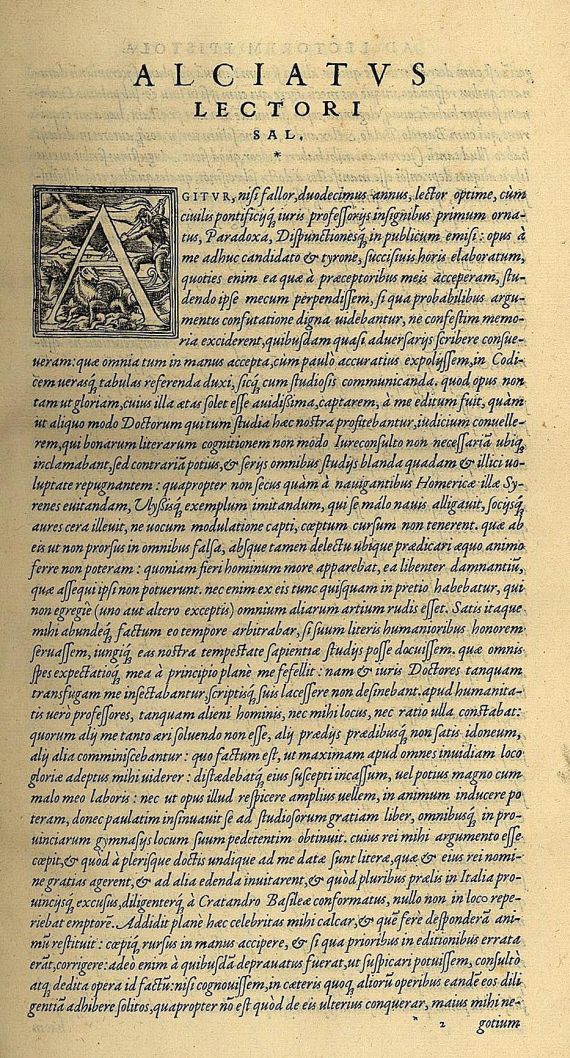 ALCIATVS
LECTORI
SAL.
*
AGITVR, nisi fallor, duodecimus annus, lector optime, cùm
ciuilis pontificijq́; iuris professorijs insignibus primum orna-
tus, Paradoxa, Dispunctionesq́; in publicum emisi: opus à
me adhuc candidato & tyrone, succisiuis horis elaboratum,
quoties enim ea quæ à præceptoribus meis acceperam, stu-
dendo ipse mecum perpendissem, si qua probabilibus argu-
mentis confutatione digna uidebantur, ne confestim memo-
ria exciderent, quibusdam quasi aduersarijs scribere consue-
ueram: quæ omnia tum in manus accepta, cùm paulò accuratius expolyssem, in Codi-
cem uerasq́; tabulas referenda duxi, sicq́; cum studiosis communicanda. quod opus non
tam ut gloriam, cuius illa ætas solet esse auidißima, captarem, à me editum fuit, quàm
ut aliquo modo Doctorum qui tum studia hæc nostra profitebantur, iudicium conuelle-
rem, qui bonarum literarum cognitionem non modò Iureconsulto non necessariā ubiq́;
inclamabant, sed contrariā potius, & serijs omnibus studijs blanda quadam & illici uo-
luptate repugnantem: quapropter non secus quàm à nauigantibus Homericæ illæ Sy-
renes euitandam, Vlyssisq́; exemplum imitandum, qui se málo nauis alligauit, socijsq́;
aures cera illeuit, ne uocum modulatione capti, cœptum cursum non tenerent. quæ ab
eis ut non prorsus in omnibus falsa, absque tamen delectu ubique prædicari æquo animo
ferre non poteram: quoniam fieri hominum more apparebat, ea libenter damnantiū,
quæ assequi ipsi non potuerunt. nec enim ex eis tunc quisquam in pretio habebatur, qui
non egregiè (uno aut altero exceptis) omnium aliarum artium rudis esset. Satis itaque
mihi abundeq́; factum eo tempore arbitrabar, si suum literis humanioribus honorem
seruassem, iungiq́; eas nostra tempestate sapientiæ studijs posse docuissem. quæ omnis
spes expectatioq́; mea à principio planè me fefellit: nam & iuris Doctores tanquam
transfugam me insectabantur, scriptisq́; suis lacessere non desinebant. apud humanita-
tis uerò professores, tanquam alieni hominis, nec mihi locus, nec ratio ulla constabat:
quorum alij me tanto æri soluendo non esse, alij prædijs prædibusq́; non satis idoneum,
alij alia comminiscebantur: quo factum est, ut maximam apud omnes inuidiam loco
gloriæ adeptus mihi uiderer: distædebatq́; eius suscepti incassum, uel potius magno cum
malo meo laboris: nec ut opus illud respicere amplius uellem, in animum inducere po
teram, donec paulatim insinuauit se ad studiosorum gratiam liber, omnibusq́; in pro-
uinciarum gymnasijs locum suum pedetentim obtinuit. cuius rei mihi argumento esse
cœpit, & quòd à plerisque doctis undique ad me datæ sunt literæ, quæ & eius rei nomi-
ne gratias agerent, & ad alia edenda inuitarent, & quòd pluribus prælis in Italia pro-
uincijsq́; excusus, diligenterq́; à Cratandro Basileæ conformatus, nullo non in loco repe-
riebat emptorē. Addidit planè hæc celebritas mihi calcar, & quē ferè desponderā ani-
mū restituit: cœpiq́; rursus in manus accipere, & si qua prioribus in editionibus errata
erāt, corrigere: adeò enim à quibusdā deprauatus fuerat, ut suspicari potuissem, consultò
atq́; dedita opera id factū: nisi cognouissem, in cæteris quoq́; aliorū operibus eandē eos dili
gentiā adhibere solitos, quapropter nō est quòd de eis ulterius conquerar, maius mihi ne-
* 2 gotium